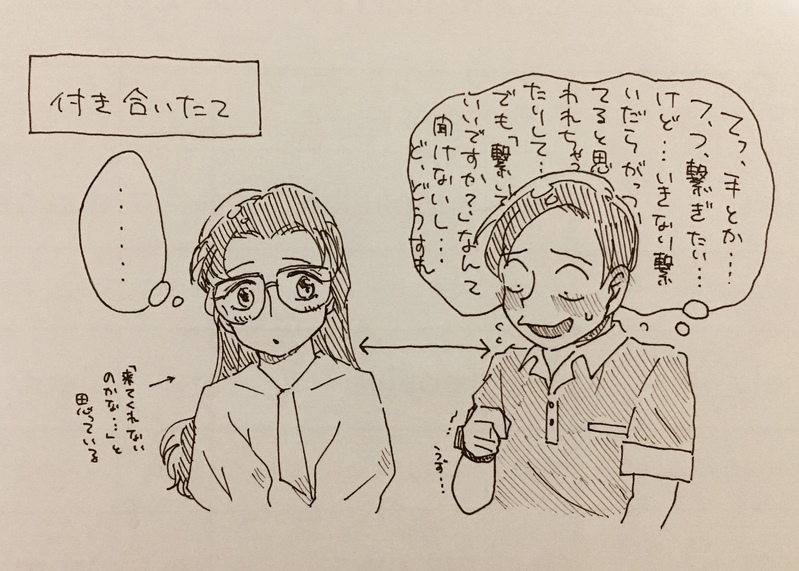 付き合いたて
てっ、手とか…
つ、つ、繋ぎたい…
けど…いきなり繋
いだらがっつい
てると思
われちゃっ
たりして…
でも「繋いで
いいですか?」なんて
聞けないし…
ど、どうすれ
……
「来てくれない
のかな…」と
思っている
うず…